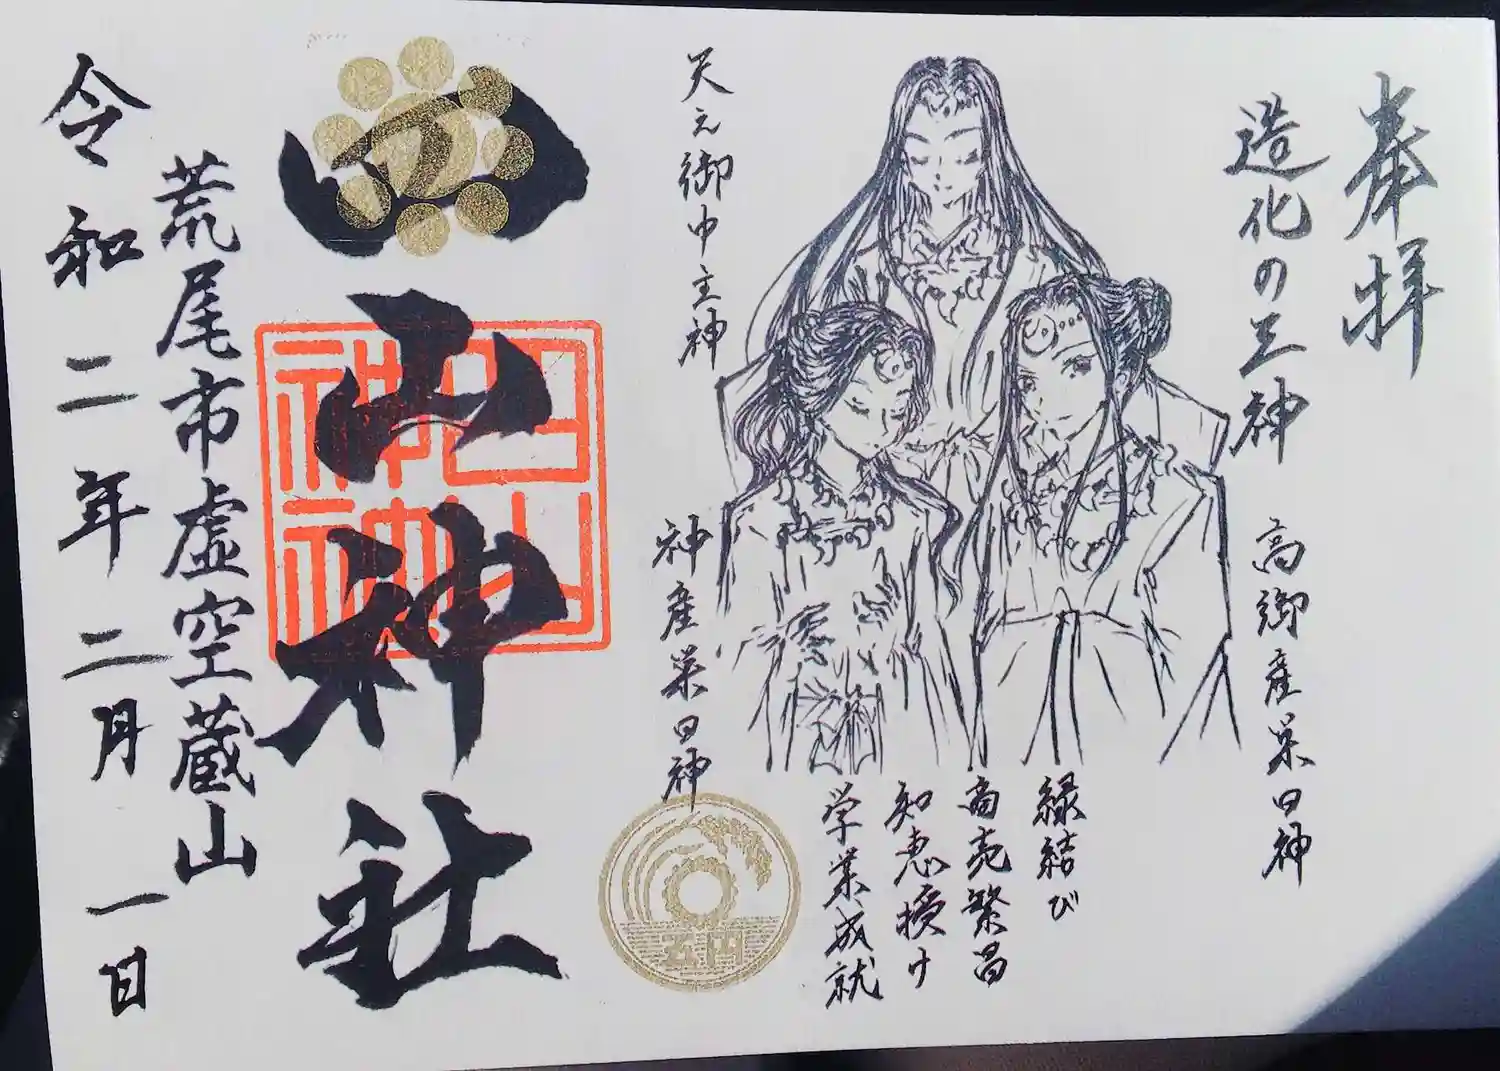 奉拝
造化の三神
高御産巣日神
天之御中主神
神産巣日神
縁結び
商売繁昌
知恵授け
学業成就
五円
四山神社
荒尾市虚空蔵山
令和二年二月一日